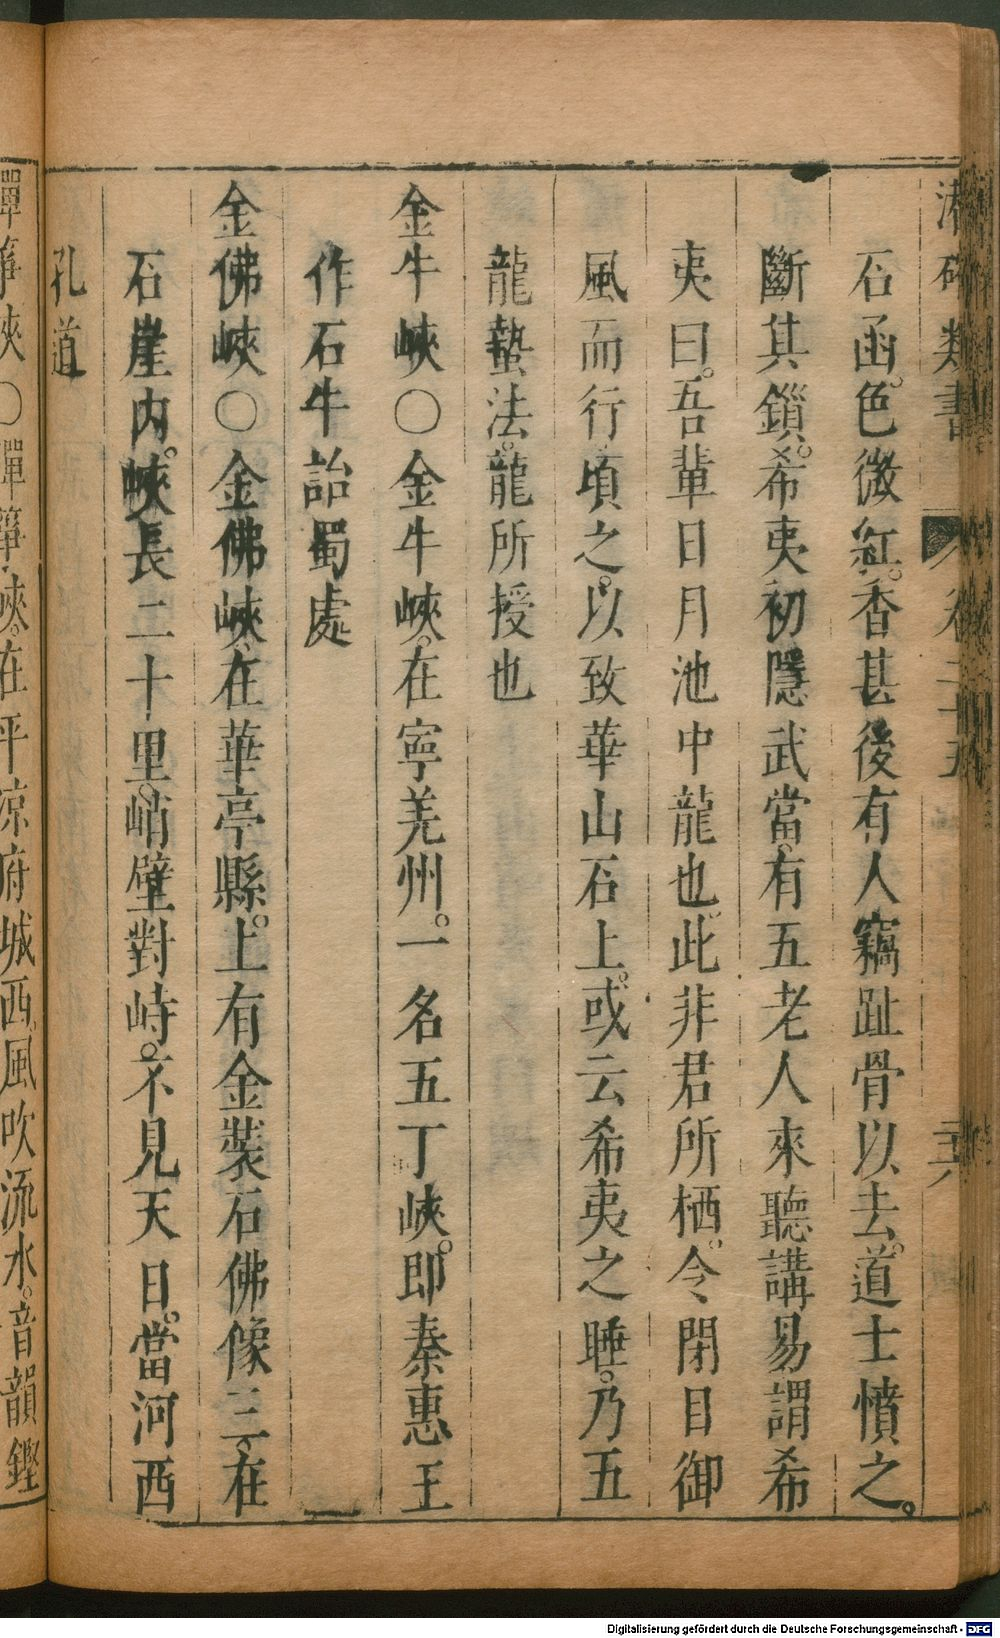 潛確類書 卷二十五
石函。色微紅。香甚後有人竊趾骨以去。道士憤之。
斷其鎖。希夷初隱武當。有五老人來聽講易謂希
夷曰。吾輩日月池中龍也。此非君所栖。令閉目御
風而行。頃之。以致華山石上。或云希夷之睡。乃五
龍蟄法。龍所授也
金牛峽〇金牛峽。在寧羌州。一名五丁峽。即秦惠王
作石牛詒蜀處
金佛峽〇金佛峽。在華亭縣。上有金裝石佛像三。在
石崖內。峽長二十里。峭壁對峙。不見天日。當河西
孔道
彈箏峽〇彈箏峽。在平涼府城西。風吹流水。音韻鏗
Digitalisierung gefördert durch die Deutsche Forschungsgemeinschaft - DFG